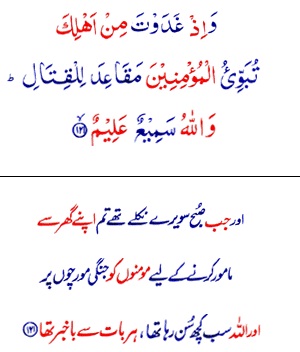 وَاِذْ غَدَوْتَ مِنْ اَهْلِكَ
تُبَوِّئُ الْمُؤْمِنِيْنَ مَقَاعِدَ لِلْقِتَالِ ؕ
وَاللّٰهُ سَمِيْعٌ عَلِيْمٌ ﴿۱۲۱﴾
اور جب صُبح سویرے نکلے تھے تم اپنے گھر سے
مامور کرنے کے لیے مومنوں کو جنگی مورچوں پر
اور اللہ سب کچھ سُن رہا تھا، ہر بات سے باخبر تھا ﴿۱۲۱﴾